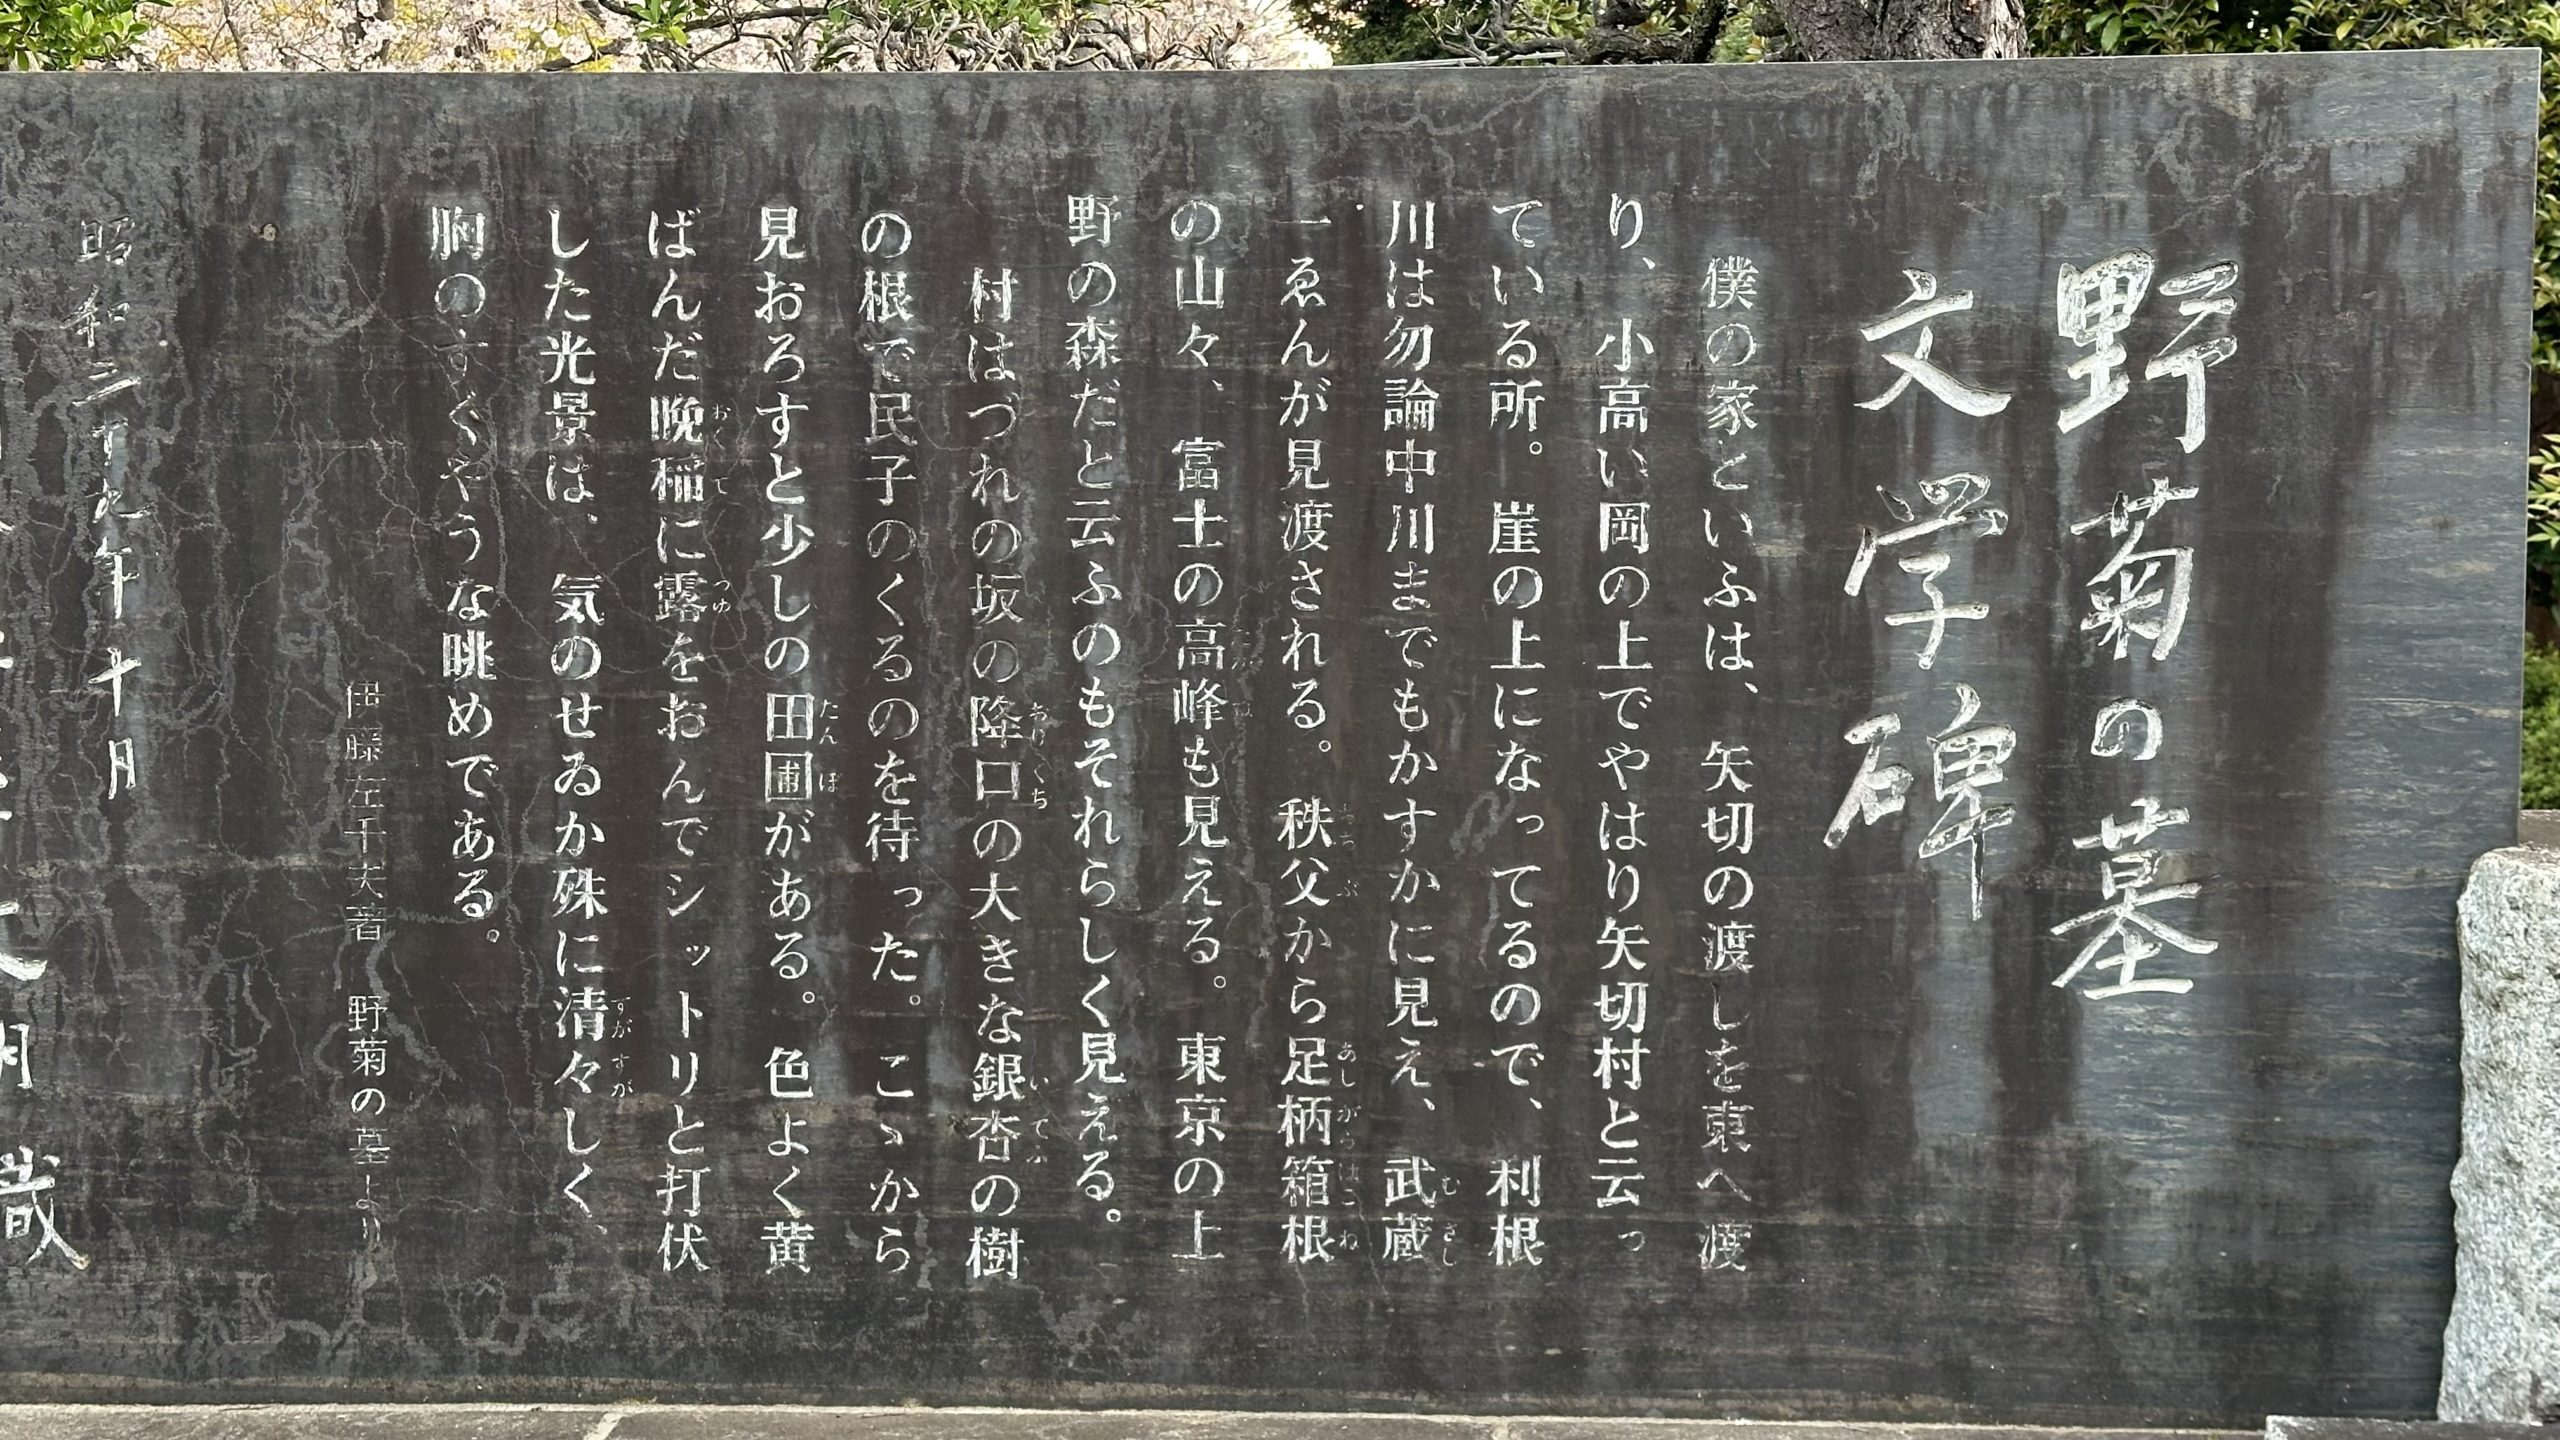 野菊の墓
文学碑
僕の家といふは、矢切の渡しを東へ渡
り、小高い岡の上でやはり矢切村と云っ
ている所。崖の上になってるので、利根
川は勿論中川までもかすかに見え、武蔵
一ゑんが見渡される。秩父から足柄箱根
の山々、富士の高峰も見える。東京の上
野の森だと云ふのもそれらしく見える。
村はづれの坂の降口の大きな銀杏の樹
の根で民子のくるのを待った。こゝから
見おろすと少しの田圃がある。色よく黄
ばんだ晩稲に露をおんでシットリと打伏
した光景は、気のせゐか殊に清々しく、
胸のすくやうな眺めである。
伊藤左千夫著 野菊の墓より
昭和三十九年十月